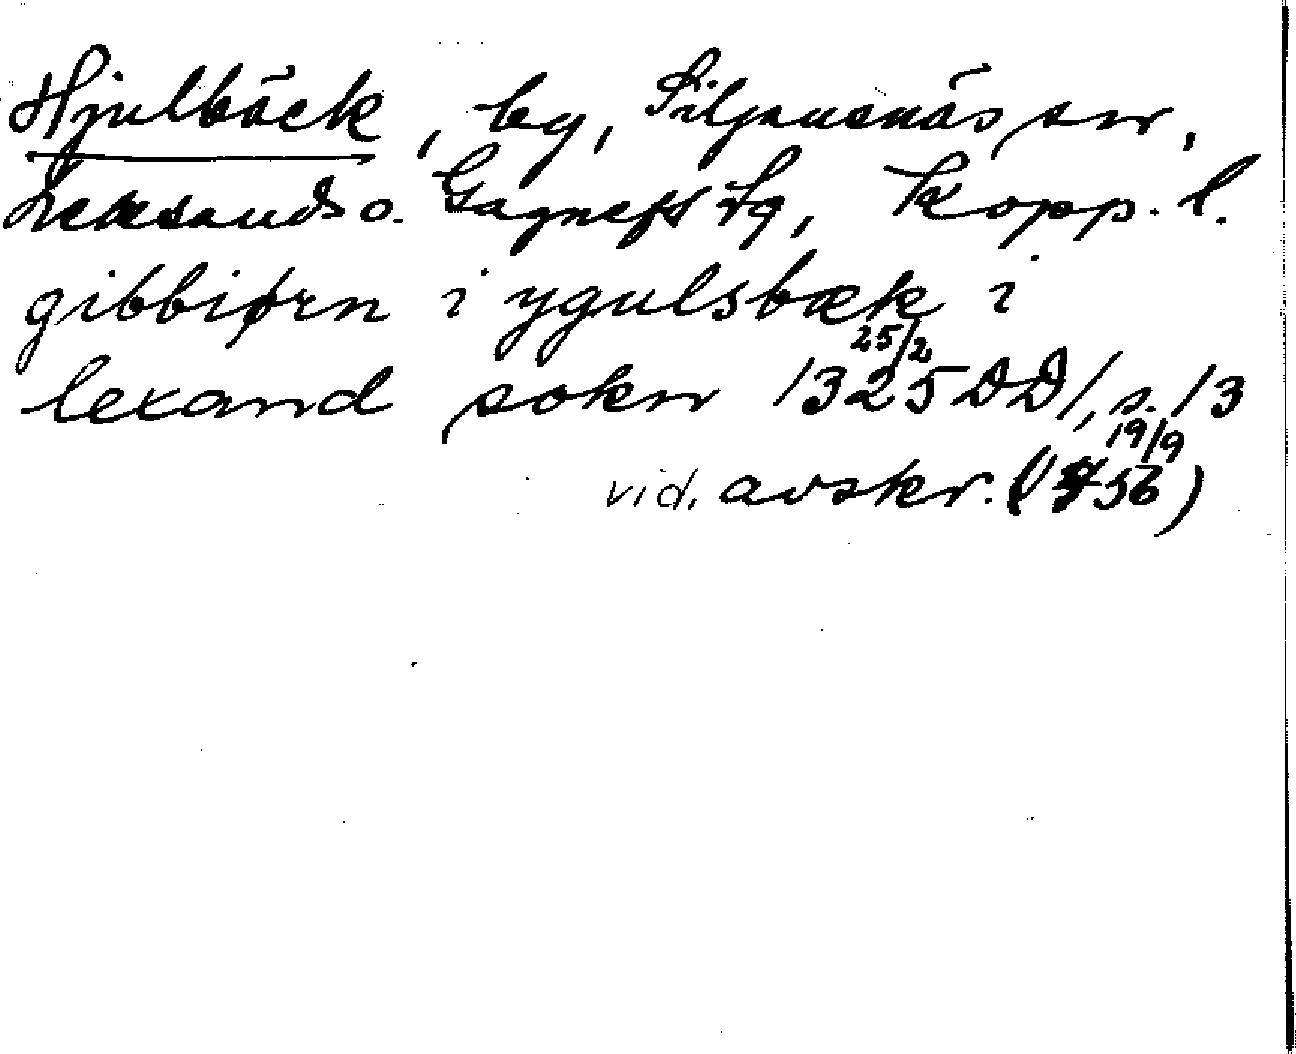 Hjulbäck, by, Siljansnäs sn,
Leksands o. Gagnefs tg, Kopp. l.
gibbiørn i ygulsbæk i
lexand sokn 25/2 1325 DD 1, s. 13
vid. avskr. (19/9 1736)